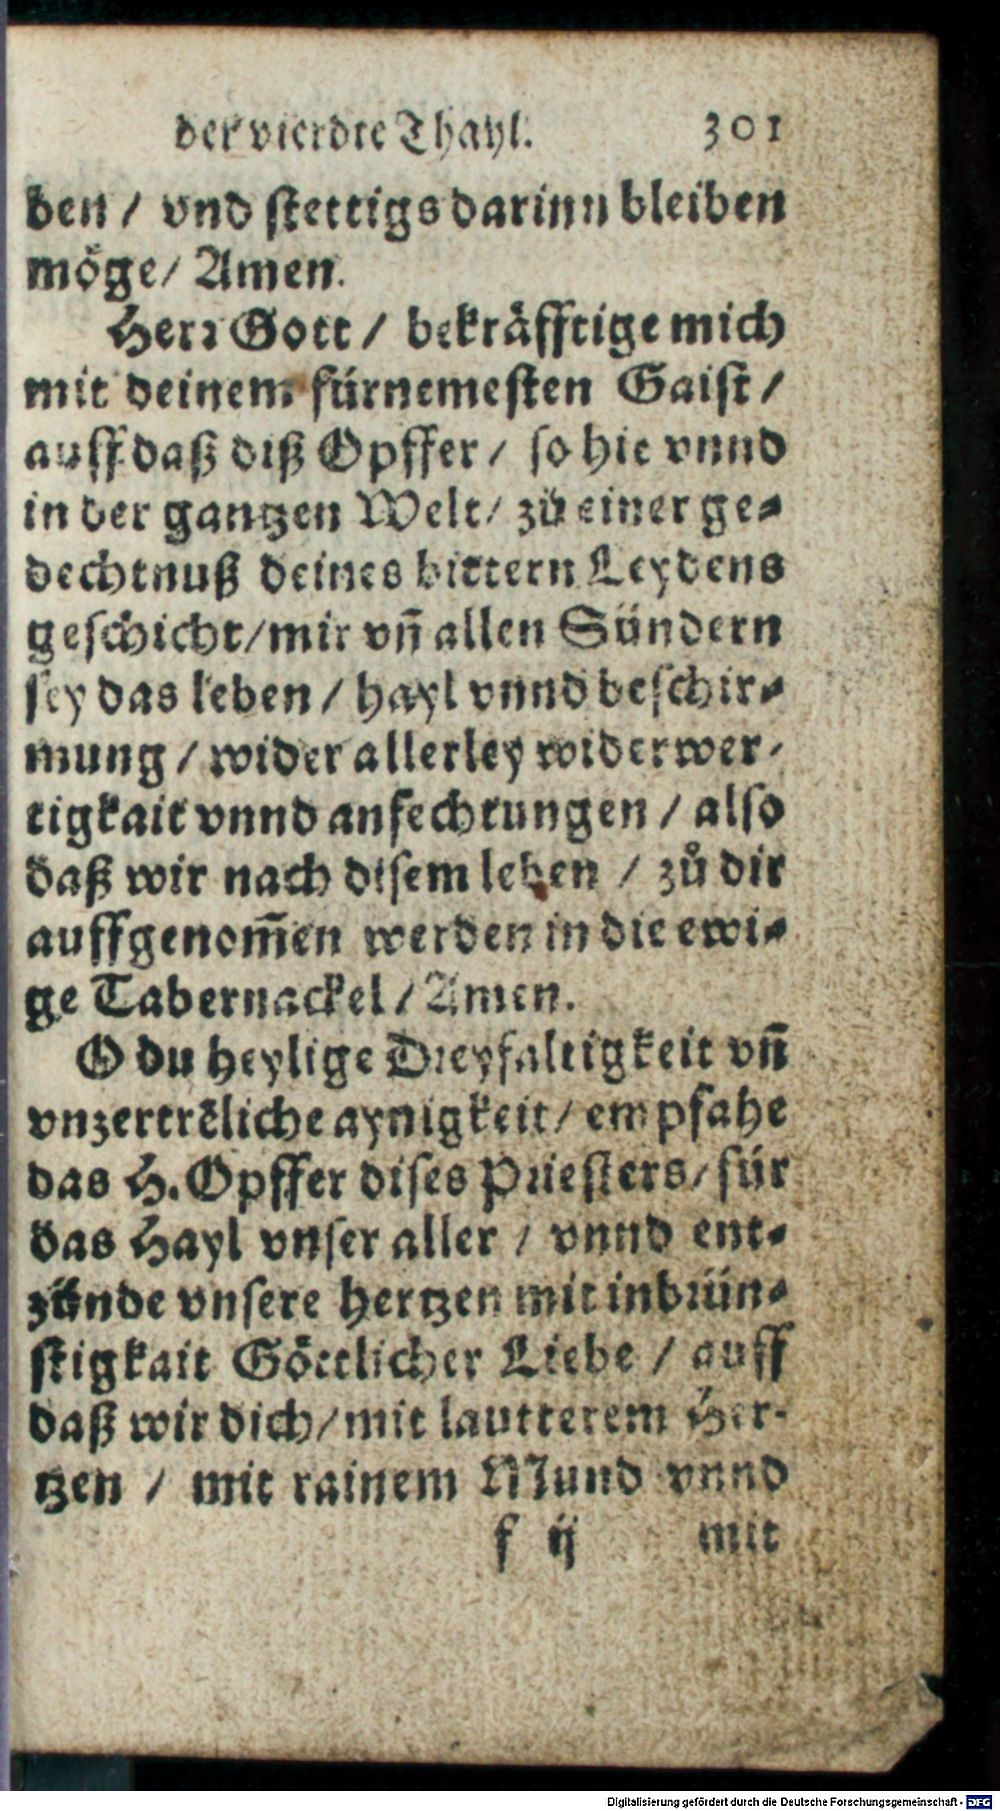 der vierdte Thayl. 301
ben / vnd stettigs darinn bleiben
möge / Amen.
Herr Gott / bekräfftige mich
mit deinem fürnemesten Gaist /
auff daß diß Opffer / so hie vnnd
in der gantzen Welt / zů einer ge-
dechtnuß deines bittern Leydens
geschicht / mir vn̄ allen Sündern
sey das leben / hayl vnnd beschir-
mung / wider allerley widerwer-
tigkait vnnd anfechtungen / also
daß wir nach disem leben / zů dir
auffgenom̄en werden in die ewi-
ge Tabernackel / Amen.
O du heylige Dreyfaltigkeit vn̄
vnzertrēliche aynigkeit / empfahe
das H. Opffer dises Priesters / für
das Hayl vnser aller / vnnd ent-
zünde vnsere hertzen mit inbrün-
stigkait Göttlicher Liebe / auff
daß wir dich / mit lautterem Her-
tzen / mit rainem Mund vnnd
f ij mit
Digitalisierung gefördert durch die Deutsche Forschungsgemeinschaft - DFG